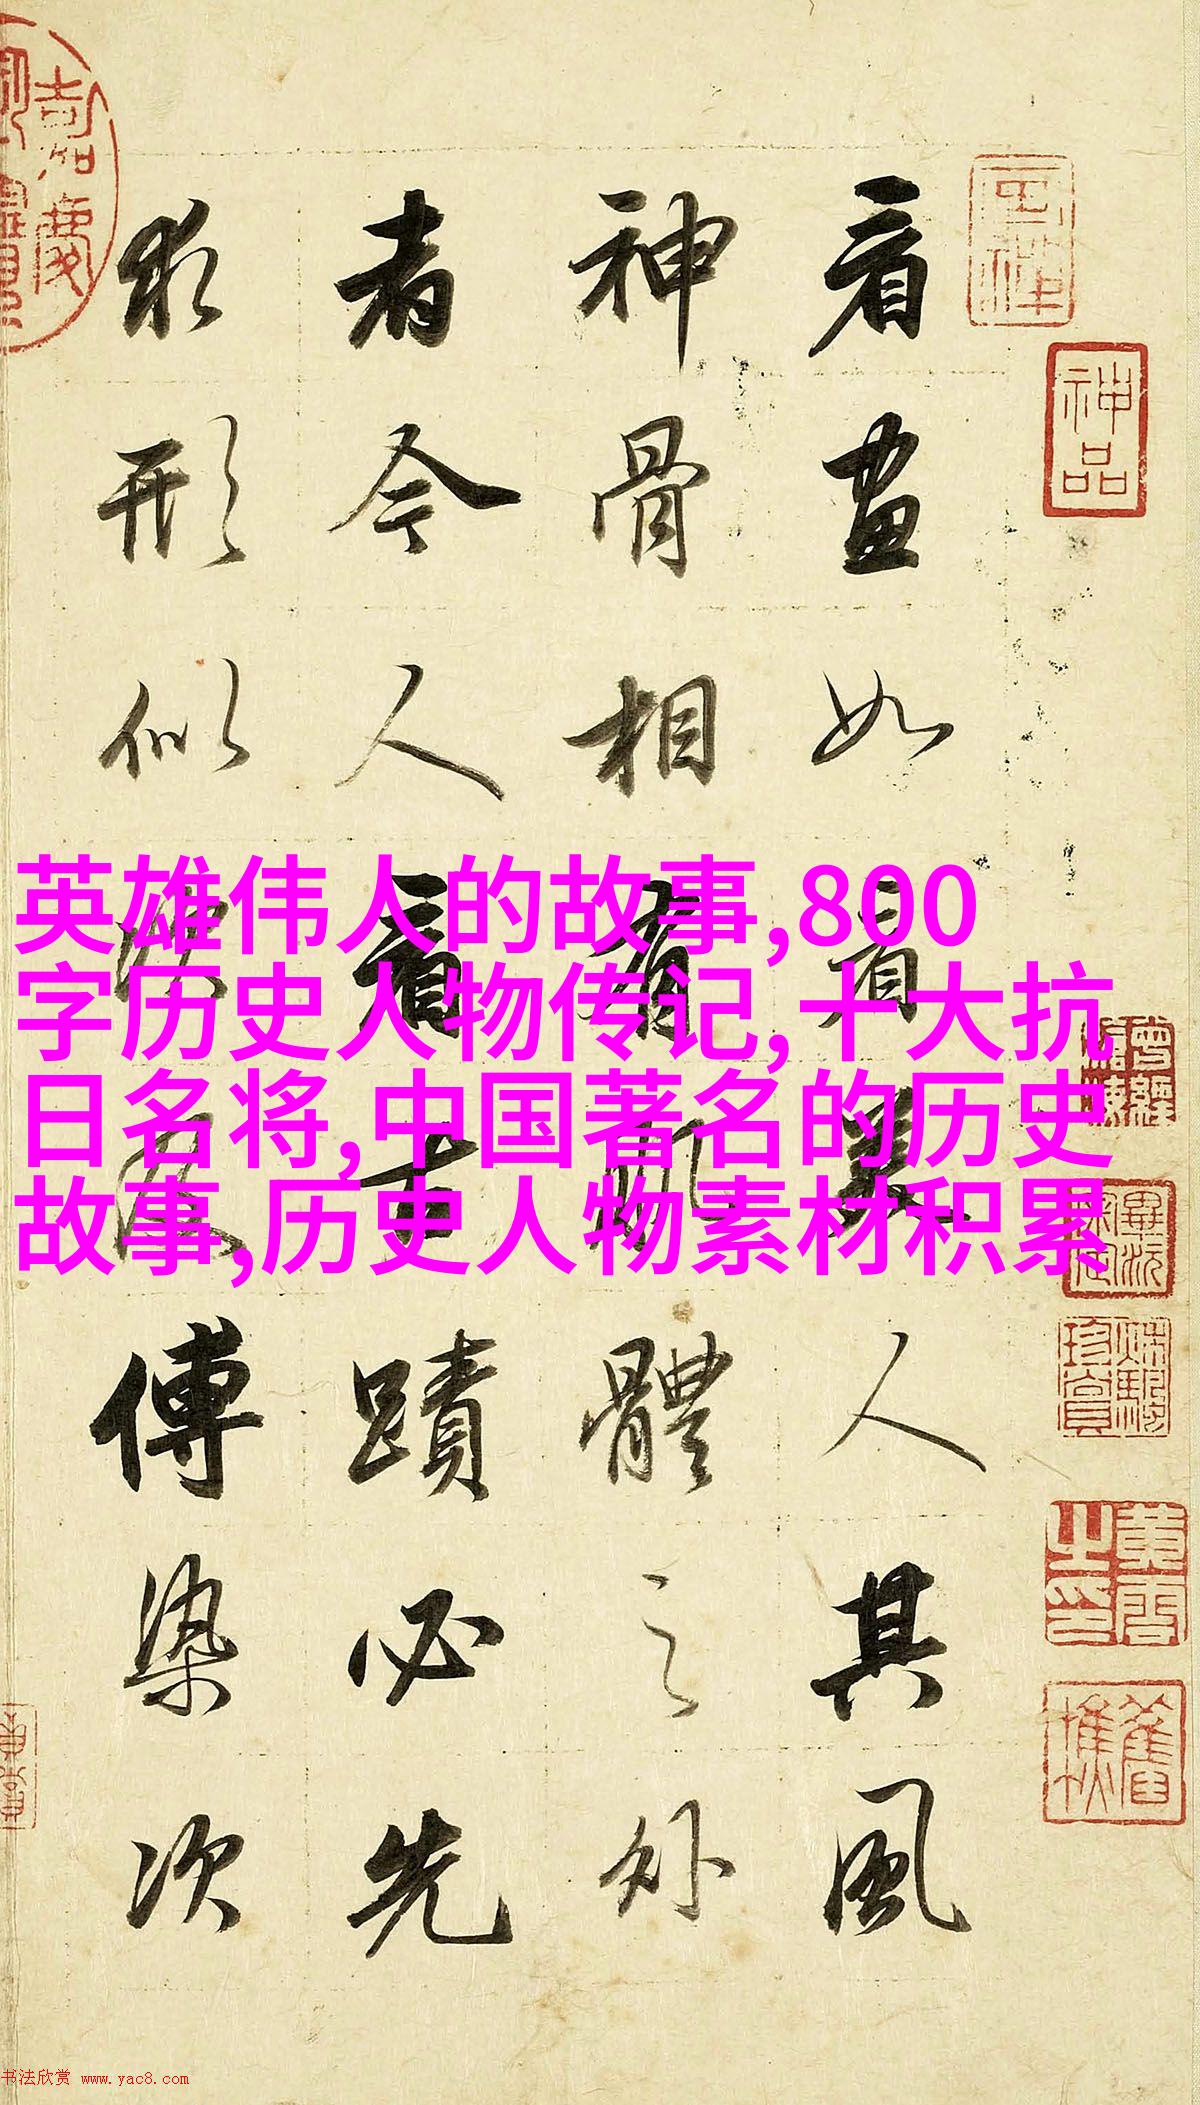 英雄伟人的故事,800
字历史人物传记,十大抗
日名将,中国著名的历史
故事,历史人物素材积累
神品
看畫如看美人其風
神骨相有肌體之外
者今人看古蹟必先
求形似次及傅染次
嘉慶
书法欣赏 www.yac8.com